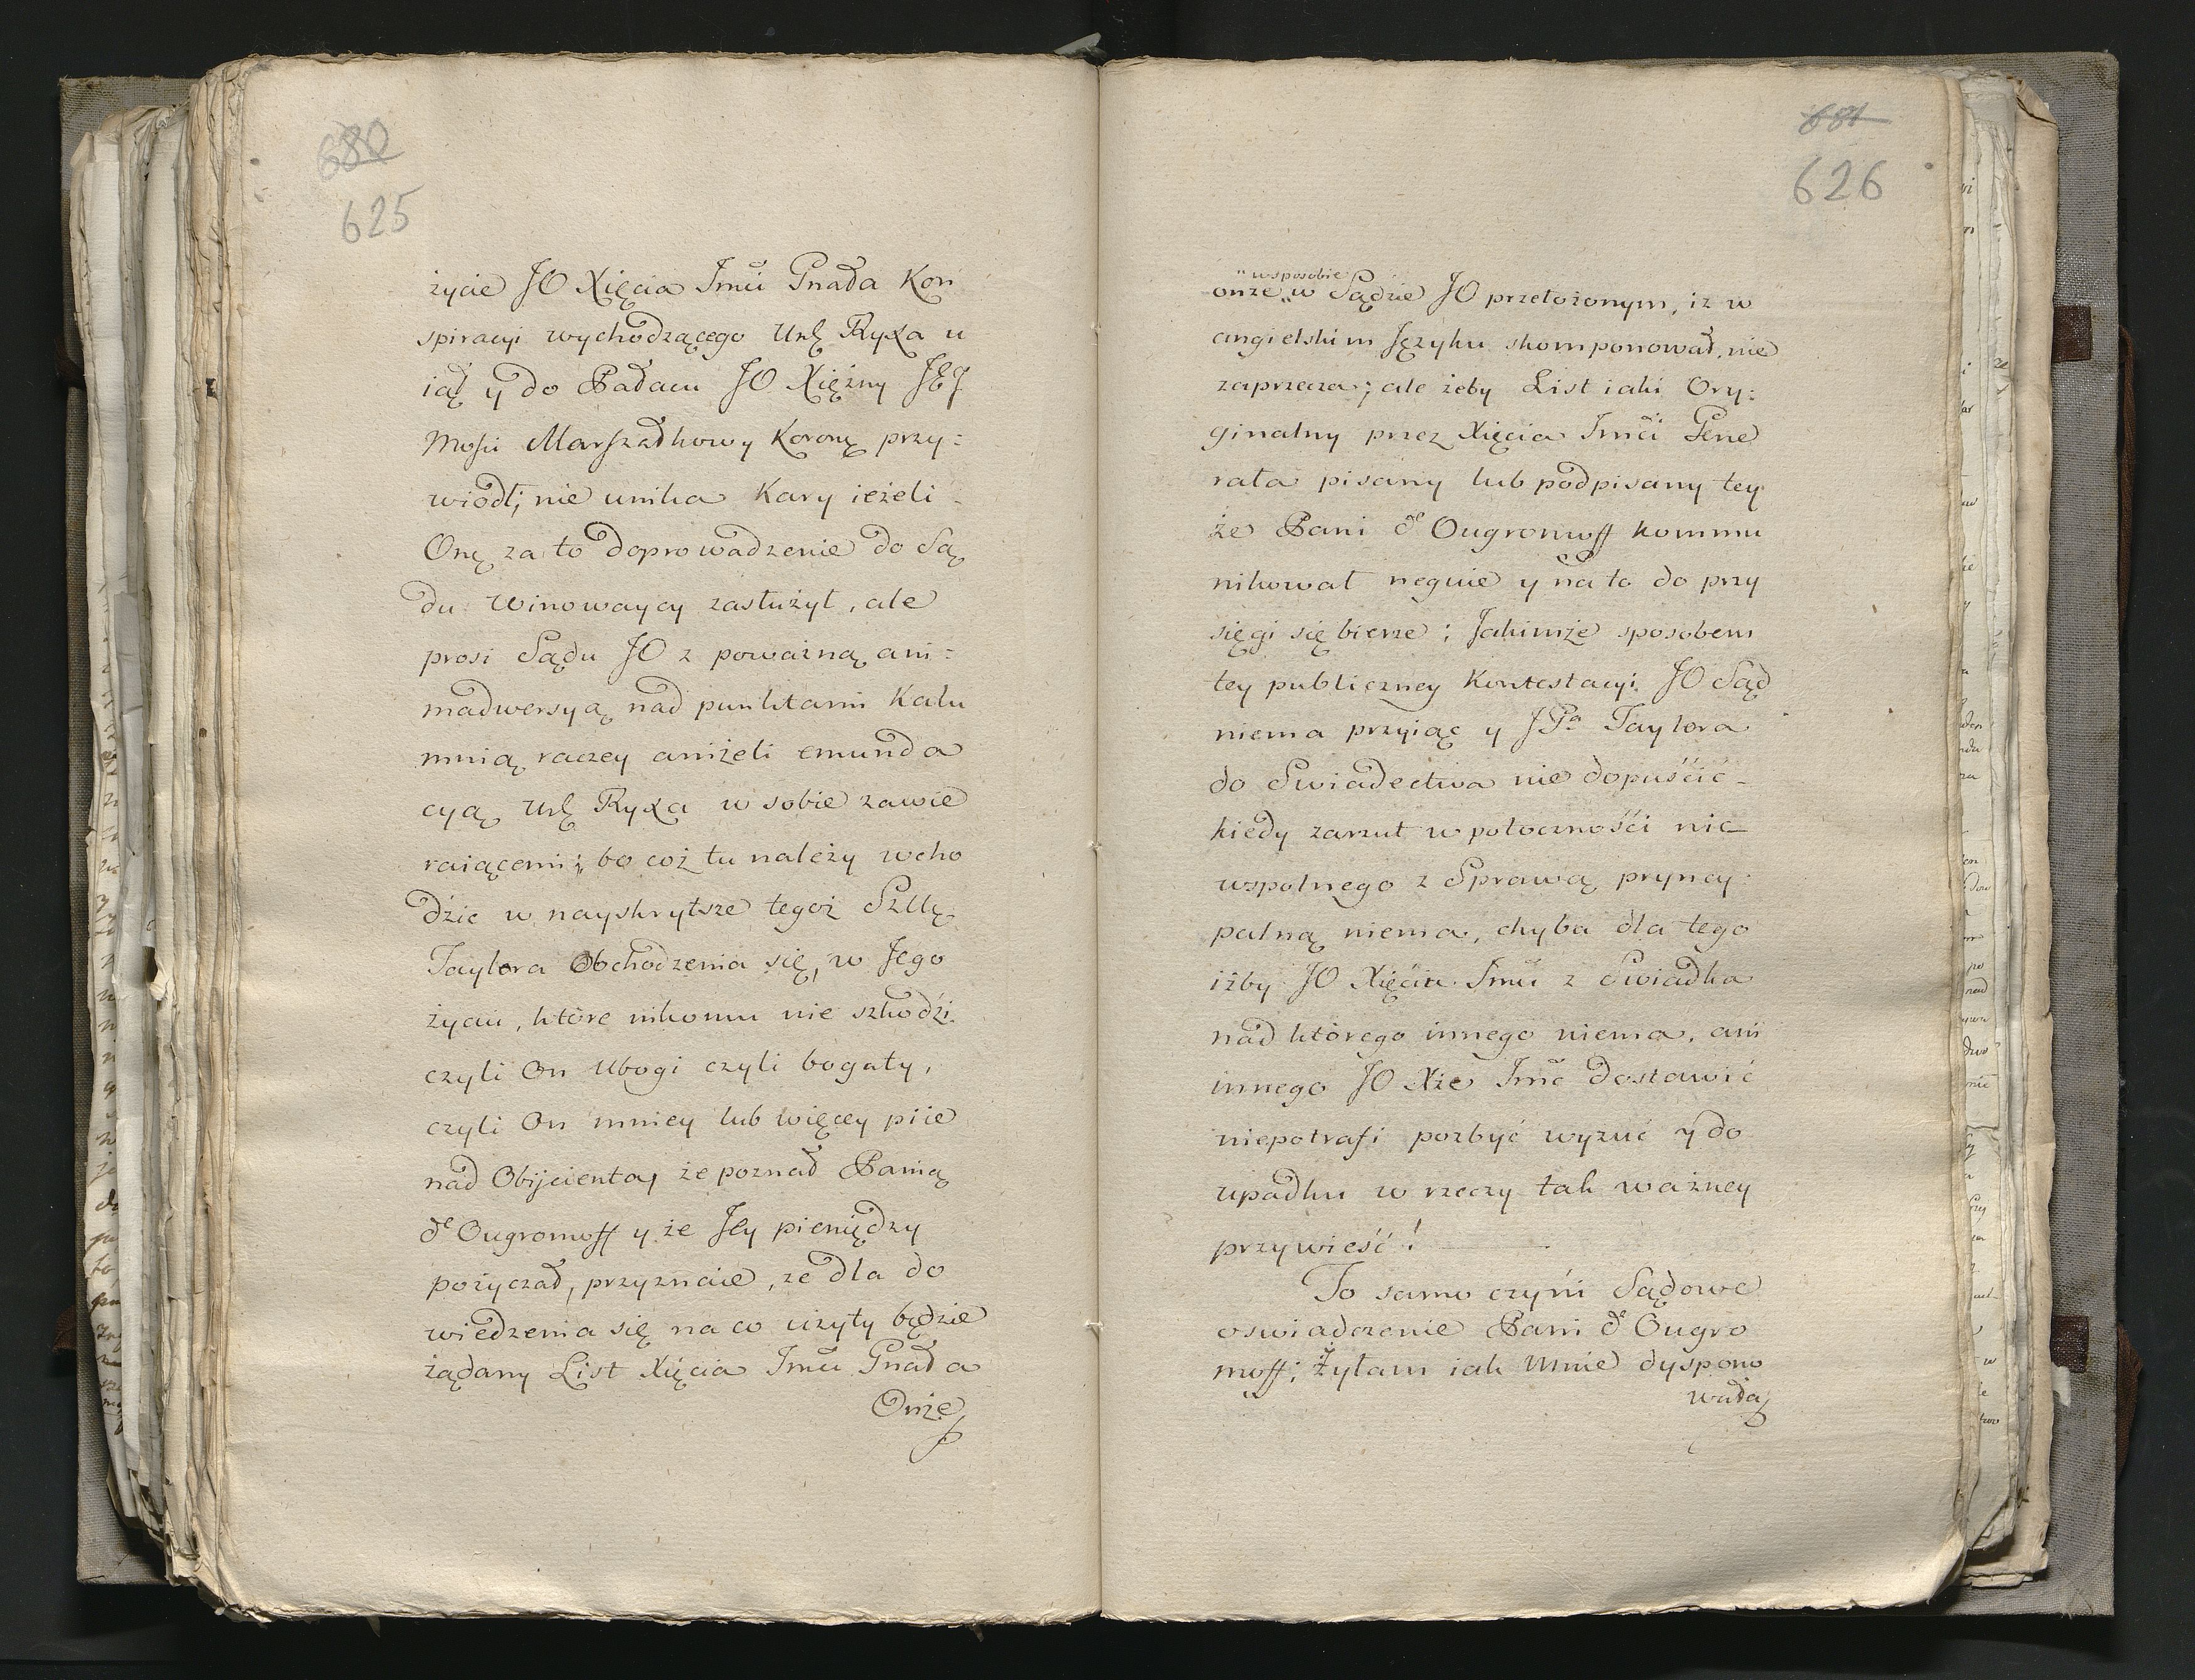 680
625
życie JO Xięcia Jmći Gnała Kon
spiracyi wychodzącego Urę Ryxa u
iął y do Pałacu JO Xiężny JEJ
Mości Marszałkowy Koronę przy:
wiodł; nie unika Kary ieżeli
Onę za to doprowadzenie do Są
du Winowaycy zasłużył, ale
prosi Sądu JO z poważną ani:
madwersyą nad punktami Kalu
mnią raczey aniżeli emunda
cyą Urę Ryxa w sobie zawie
raiącemi; bo coż tu należy wcho
dzic w nayskrytsze tegoż Szllę
Taylora Obchodzenia się, w Jego
życiu, które nikomu nie szkodzi
czyli On Ubogi czyli bogaty,
czyli On mniey lub więcey piie
nad Obijcienta, że poznał Panią
d'Ougromoff y że Jey pieniędzy
pożyczał, przyznaie, ze dla do
wiedzenia się na co użyty będzie
żądany List Xięcia Jmći Gnała
Onże
681
626
"wsposobie
onze "w Sądzie JO przełożonym, iz w
angielskim Języku skomponował, nie
zaprzecza; ale żeby List iaki Ory:
ginalny przez Xięcia Jmći Gene
rała pisany lub podpisany tey
że Pani d'Ougromoff kommu
nikował neguie y na to do przy
sięgi się bierze; Jakimże sposobem
tey publiczney Kontestacyi JO Sąd
niema przyiąc y JPa Taylora
do Swiadectwa nie dopuścić -
kiedy zarzut w potoczności nic
wspolnego z Sprawą pryncy:
palną niema, chyba dla tego
iżby JO Xięcia Jmći z Swiadka
nad którego innego niema, ani
innego JO Xże Jmć dostawić
niepotrafi pozbyć wyzuć y do
upadku w rzeczy tak ważney
przywieść!
To samo czyni Sądowe
oswiadczenie Pani d'Ougro
moff; Żyłam iak Mnie dyspono
wała